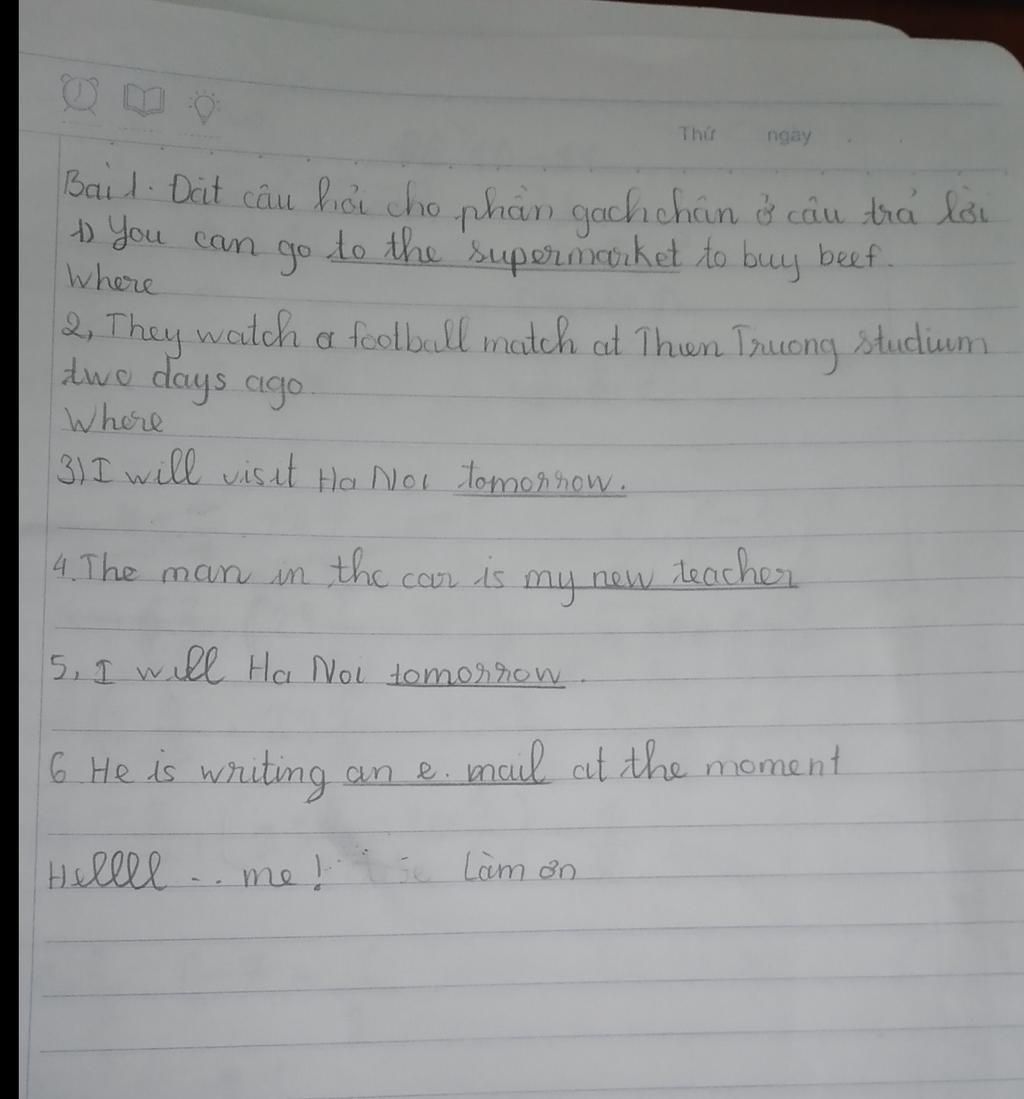 Thứ ngày
Bài 1. Đặt câu hỏi cho phần gạch chân ở câu trả lời
1) You can go to the supermarket to buy beef.
Where
2, They watch a football match at Thien Truong studium
two days ago.
Where
3) I will visit Ha Noi tomorrow.
4. The man in the car is my new teacher
5, I will Ha Noi tomorrow.
6 He is writing an e. mail at the moment
Hellll .. me! Làm ơn